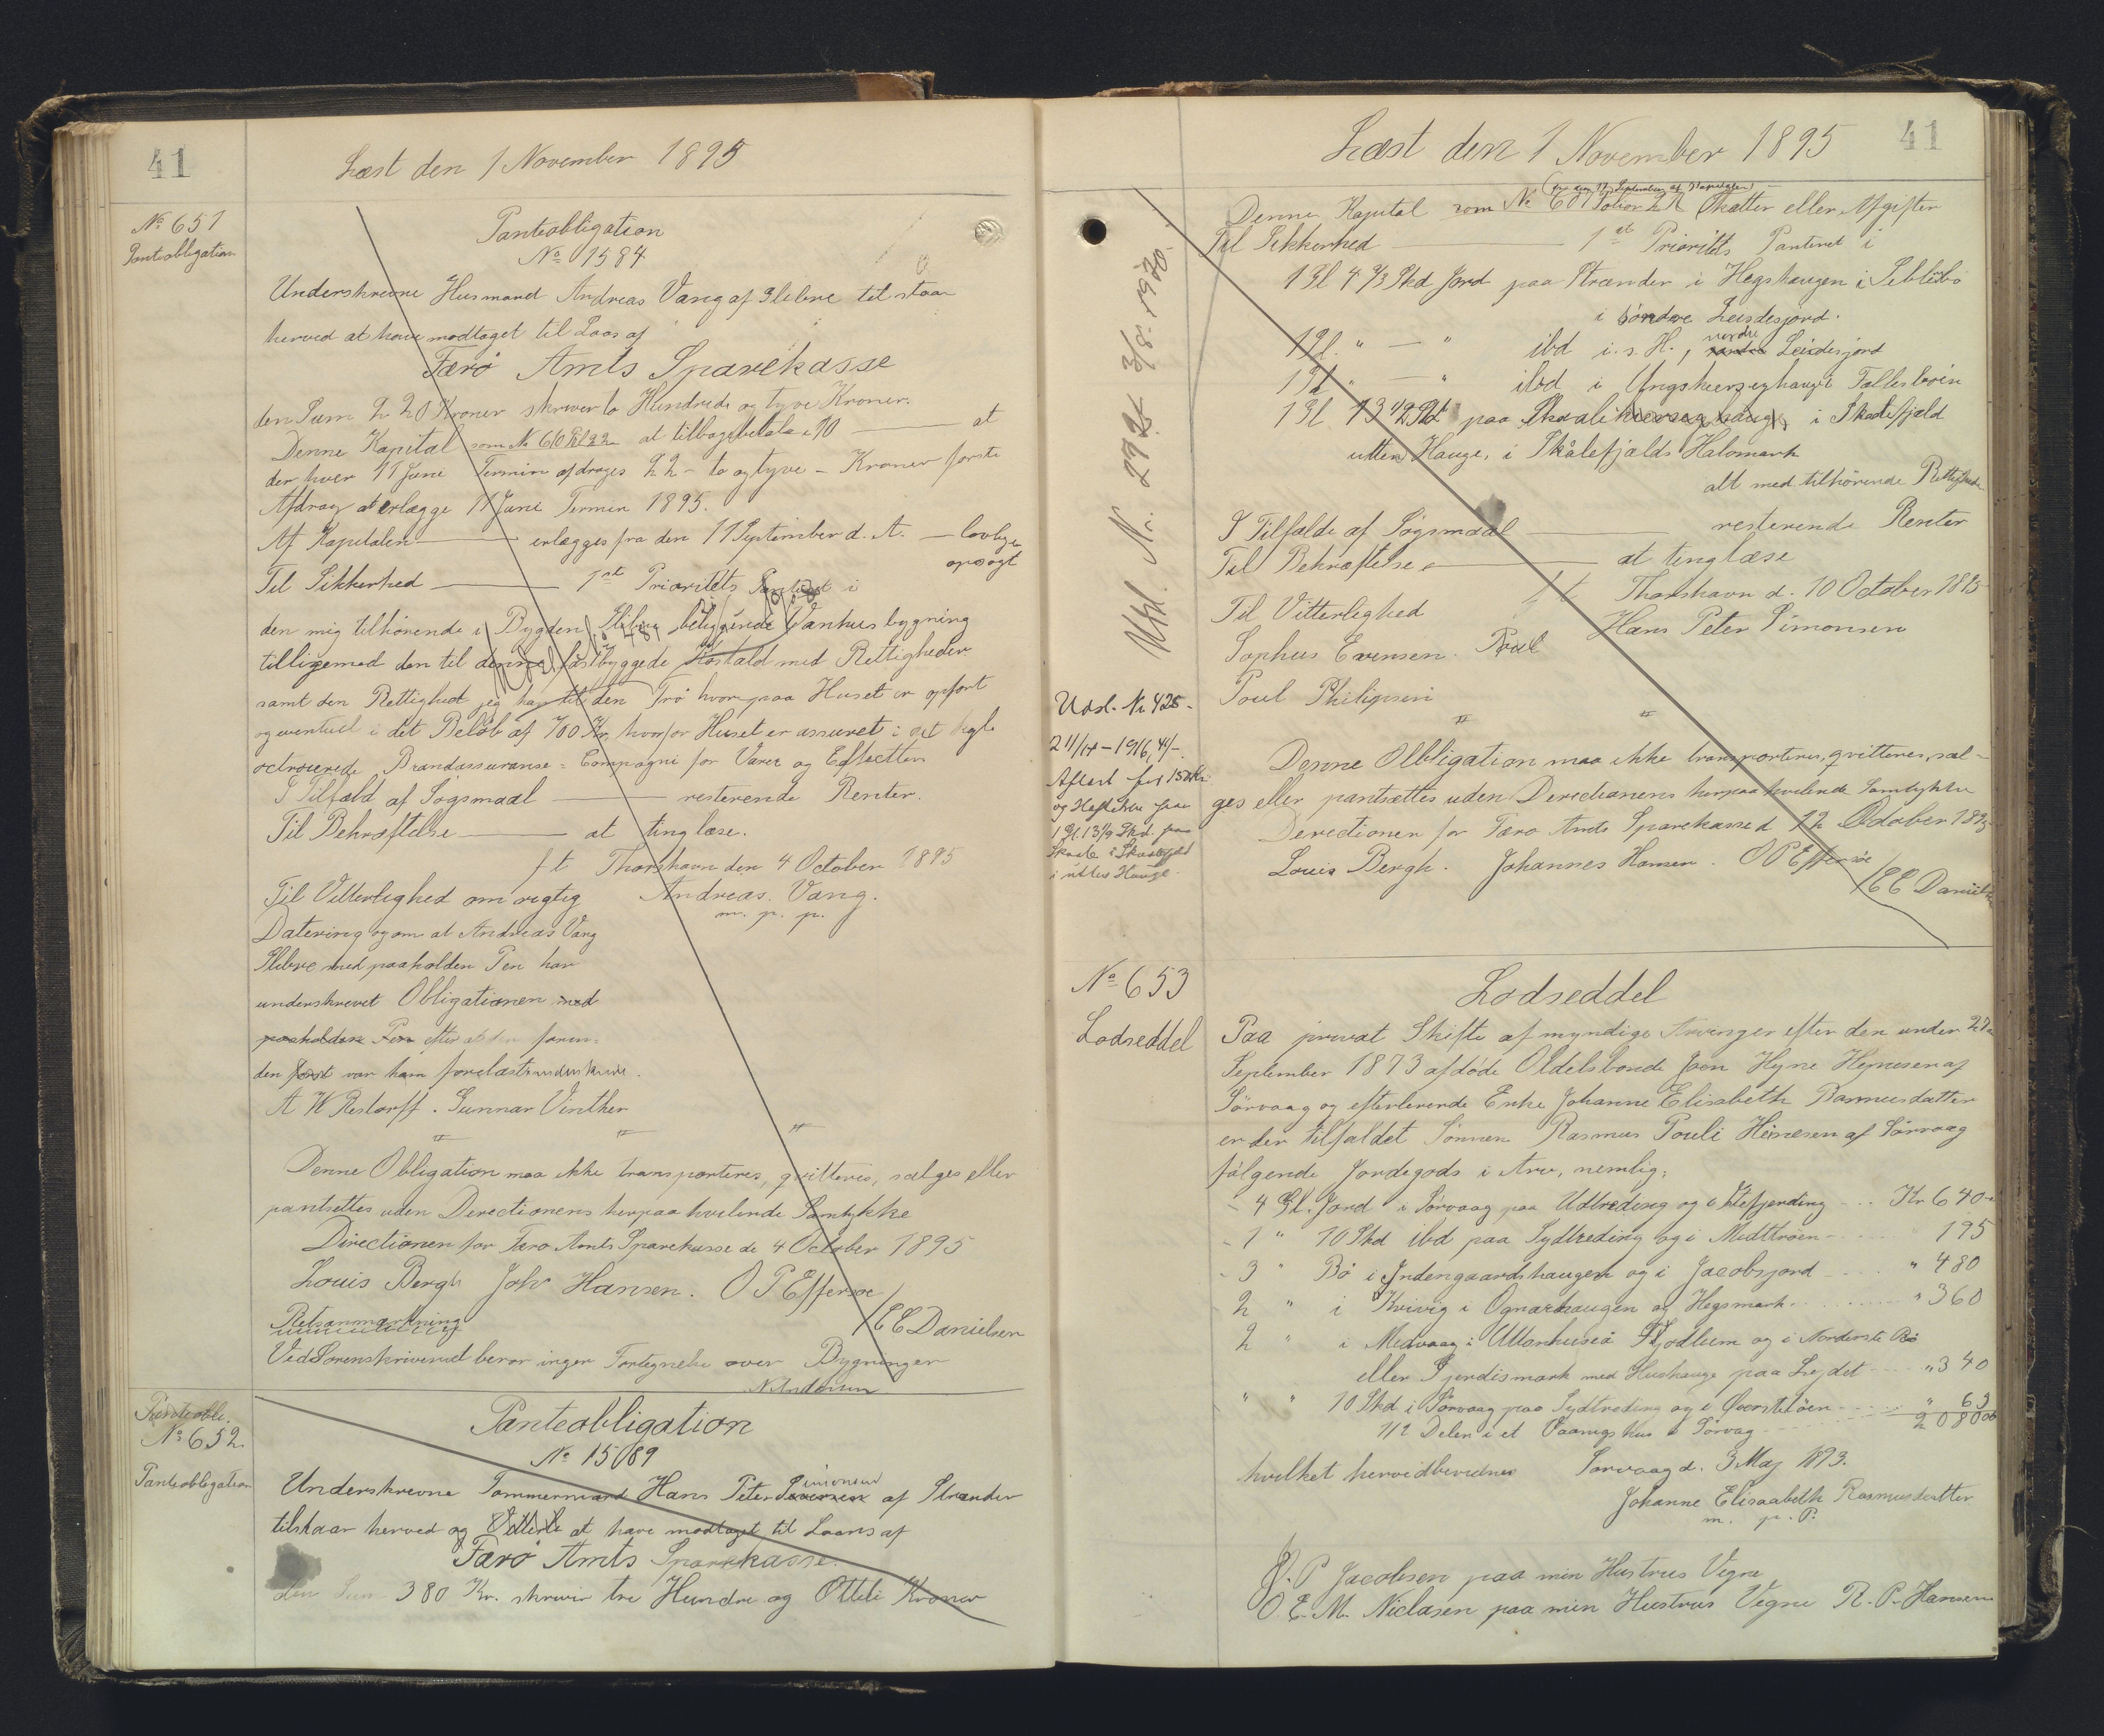 41
Læst den 1 November 1895
No 651
Panteobligation
Panteobligation
No 1584
Underskrevne Husmand Andreas Vang af Slibne tilstaar
herved at have modtaget til Laans af
Færö Amts Sparekasse
den Sum 220 Kroner skriver to Hundrede og tyve Kroner.
Denne Kapital som No 610 at tilbagebetale 10 — at
der hver 11 Juni Termin afdrages 22 - to og tyve - Kroner første
Afdrag at erlægge 11 Juni Termin 1895.
Af Kapitalen — erlægges fra den 11 September d. A. — lovlige
opsagt
Til Sikkerhed — 1ste Prioritets Panteret i
den mig tilhörende i Bygden beliggende Vaanhusbygning
tilligemed den til denne fastbyggede Kostald med Rettigheder
samt den Rettighed jeg har til den Trö hvorpaa Huset er opfört
og eventuel i det Belöb af 700 Kr, hvorfor Huset er assuret i det kgle
octroierede Brandassuranse=Compagni for Varer og Effectter
I Tilfæld af Sögsmaal — resterende Renter.
Til Bekræftelse — at tinglæse.
f t Thorshavn den 4 October 1895
Til Vitterlighed om rigtig Andreas Vang.
m. p. p.
Datering og om at Andreas Vang
Slibne med paaholden Pen har
underskrevet Obligationen med
paaholden Pen efter at den forin=
den först var ham forelæst underskrive.
A W Restorff. Gunnar Vinther
Denne Obligation maa ikke transporteres, qvitteres, sælges eller
pantsettes uden Directionens herpaa hvilende Samtykke
Directionen for Færo Amts Sparekasse de 4 October 1895
Louis Bergh Joh Hansen. O P Effersøe
/E E Danielsen
Retsanmærkning
Ved Sorenskriveriet beror ingen Fortegnelse over Bygninger
N Andersen
Panteobli.
No 652
Panteobligation
Panteobligation
No 15089
Underskrevne Tømmermand Hans Peter Simonsen af Strænder
tilstaar herved og at have modtaget til Laans af
Færö Amts Sparekasse.
den Sum 380 Kr. skriver tre Hundre og Otteti Kroner
41
Læst den 1 November 1895
Denne Kapital som No 607 Skatter eller Afgifter
Til Sikkerhed — 1ste Prioritets Panteret i
1 Gl 4 2/3 Skd Jord paa Strænder i Hegshaugen i
i söndre Leidesjord.
1 Gl. " — " ibd i. s. H., nordre Leidesjord
1 Gl " — " ibd i
1 Gl 13 1/2 Skd paa Skaale i Skaalefjeld
utten Hauge, i Skålefjælds Halvmark
alt med tilhörende Rettigheder
I Tilfælde af Sögsmaal — resterende Renter
Til Bekræftelse — at tinglæse
f t Thorshavn d. 10 October 1895
Til Vitterlighed Hans Peter Simonsen
Sophus Evensen. Poul
Poul Philipsen
Utsl. Nr. 292 3/8. 1920.
Udsl. Nr. 425 -
211/14 - 1916, 44/-
Aflæst for 150 Kr
og Heftelsen paa
1 Gl. 13 1/2 Skd. paa
Skaale i Skaalefjeld
i uttes Hauge.
Denne Obligation maa ikke transporteres, qvitteres, sæl-
ges eller pantsættes uden Directionens herpaa hvilende Samtykke
Directionen for Færo Amts Sparekasse d 12 October 1895
Louis Bergh. Johannes Hansen. O P Effersøe
/E E Danielsen
No 653
Lodseddel
Lodseddel
Paa privat Skifte af myndige Arvinger efter den under 22de
September 1873 afdöde Oldelsbonde Joen Hyne Hejnesen af
Sörvaag og efterlevende Enke Johanne Elisabeth Rasmusdatter
er der tilfaldet Sönnen Rasmus Pouli Heinesen af Sörvaag
fölgende Jordegods i Arv, nemlig:
- 4 Gl. Jord i Sörvaag paa Udtreding og i Klefjerding Kr 640
- 1 " 10 Skd ibd paa Sydtreding og i Midttröen 195
- 3 " Bö i Indengaardshaugen og i Jacobsjord " 480
2 " i Kvivig i Ognarhaugen og Hegsmark " 360
2 " i Midvaag i Uttanhuseå og i Norderste Bö
eller Gjerdismark med Hushauge paa Lejdet " 340
" " 10 Skd i Sörvaag paa Sydtreding og i Överstetröen " 65
1/12 Delen i et Vaaningshus i Sörvag 2080 00
hvilket herved bevidnes Sörvaag d. 3 Maj 1893.
Johanne Elisaabeth Rasmusdatter
m. p. P.
J. P Jacobsen paa min Hustrus Vegne
O E. M. Niclasen paa min Hustrus Vegne R. P. Hansen